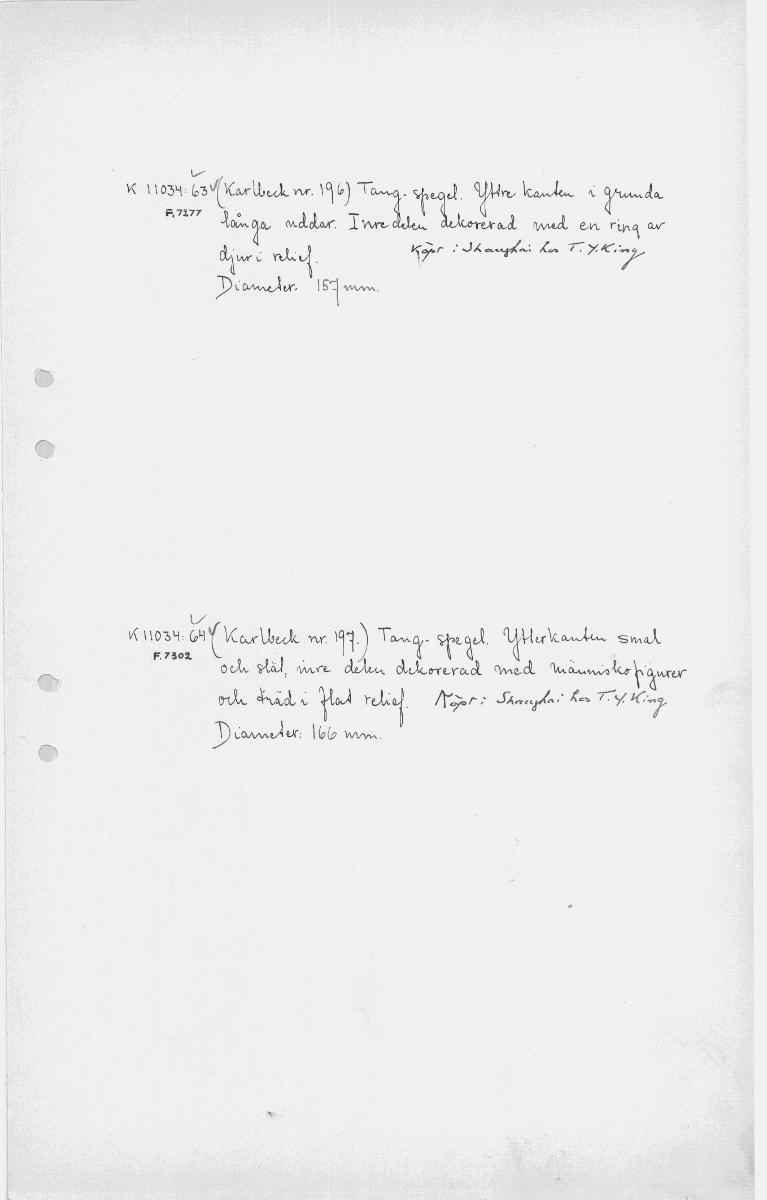 K 11034:63 (Karlbeck nr. 196) Tang-spegel. Yttre kanten i grunda
F.7277
långa uddar. Inre delen dekorerad med en ring av
djur i relief. Köpt i Shanghai hos T.Y. King
Diameter. 157 mm.
K 11034:64 (Karlbeck nr. 197.) Tang-spegel. Ytterkanten smal
F.7302
och slät, inre delen dekorerad med människofigurer
och träd i flat relief. Köpt i Shanghai hos T.Y. King
Diameter: 166 mm.